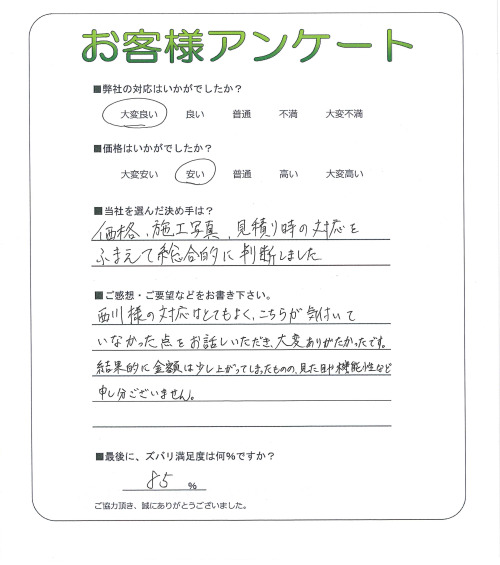 お客様アンケート
■弊社の対応はいかがでしたか？
大変良い 良い 普通 不満 大変不満
■価格はいかがでしたか？
大変安い 安い 普通 高い 大変高い
■当社を選んだ決め手は？
価格、施工写真、見積り時の対応を
ふまえて総合的に判断しました
■ご感想・ご要望などをお書き下さい。
西川様の対応はとてもよく、こちらが気付いて
いなかった点をお話しいただき、大変ありがたかったです。
結果的に金額は少し上がってしまったものの、見た目や機能性など
申し分ございません。
■最後に、ズバリ満足度は何%ですか？
85 %
ご協力頂き、誠にありがとうございました。